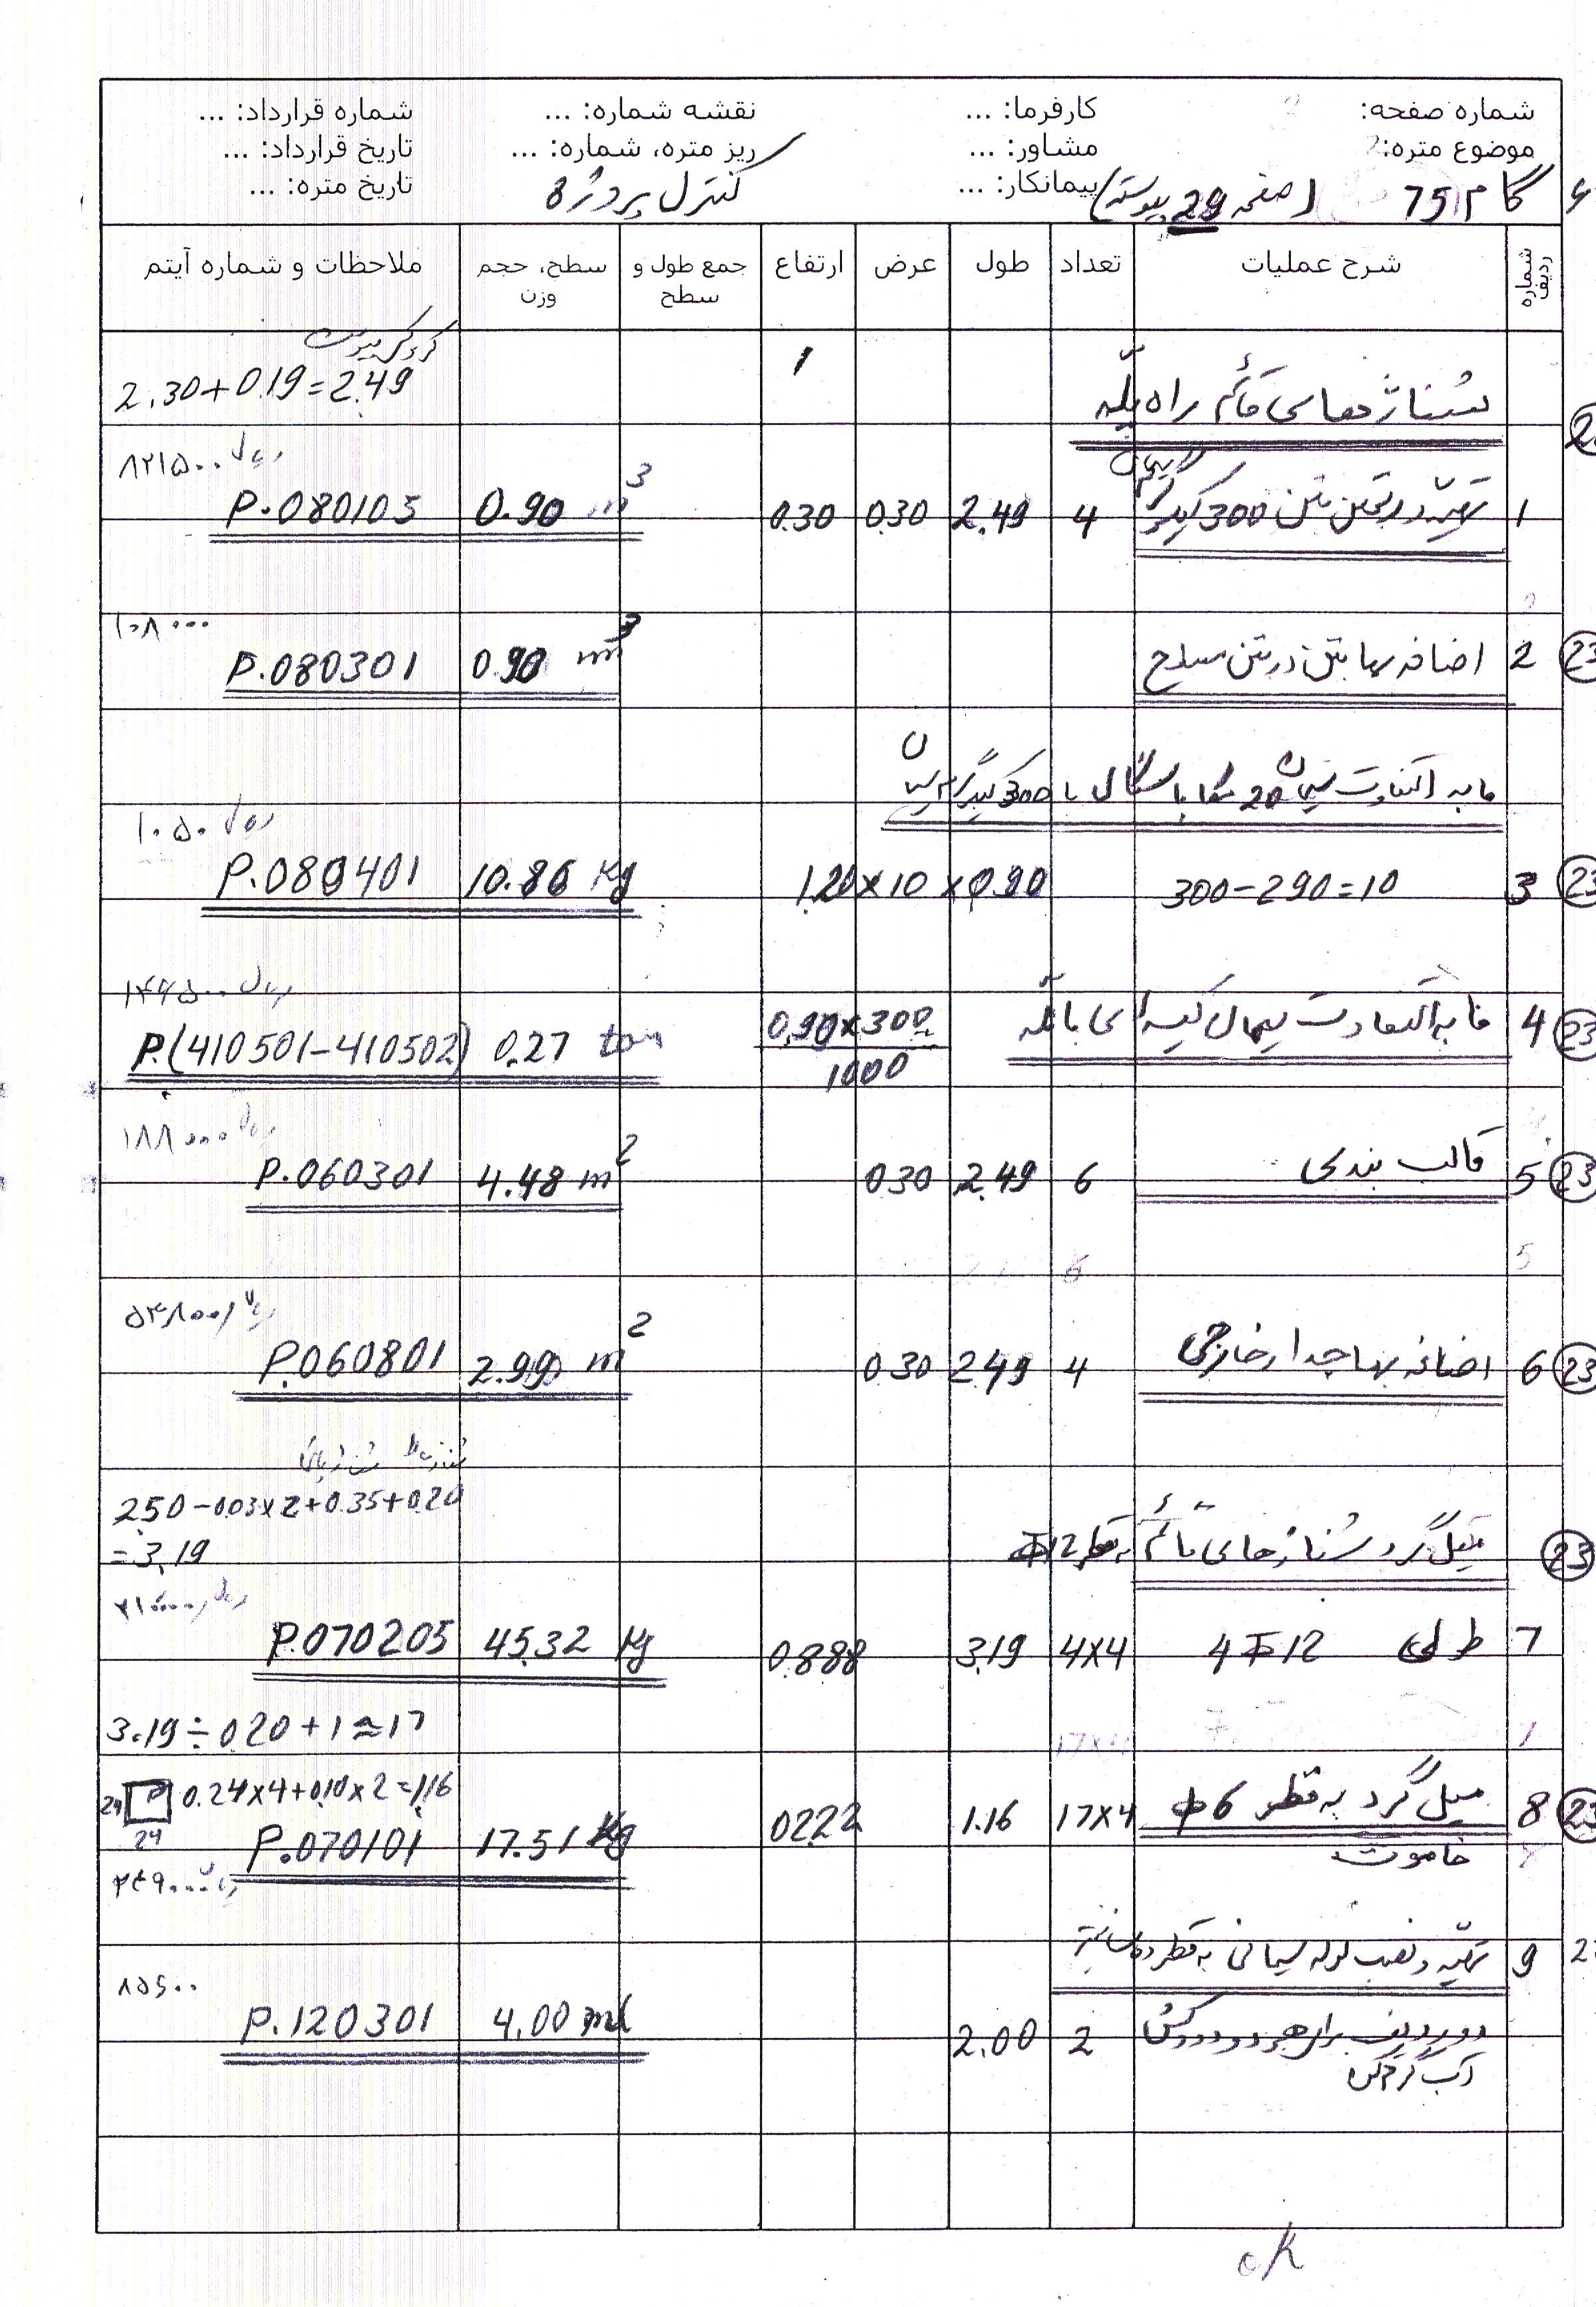 شماره صفحه:
کارفرما: ...
نقشه شماره: ...
شماره قرارداد: ...
موضوع متره:
مشاور: ...
ریز متره، شماره: ...
تاریخ قرارداد: ...
گام 75 (صفحه 29 پیوست)
پیمانکار: ...
کنترل پروژه 8
تاریخ متره: ...
شماره ردیف
شرح عملیات
تعداد
طول
عرض
ارتفاع
جمع طول و سطح
سطح، حجم وزن
ملاحظات و شماره آیتم
شناژ های قائم راه پله
2.30+0.19=2.49
۸۲۱۵۰۰ ریال
1 تهیه و ریختن بتن 300 کیلوگرم 4 2.49 0.30 0.30 0.90 m3 P.080105
۱۰۸۰۰۰
23 2 اضافه بها بتن در بتن مسلح 0.90 m3 P.080301
مابه التفاوت سیمان
300 کیلوگرم
۱۰۵۰ ریال
23 3 300-290=10 0.90 × 10 × 1.20 10.86 Kg P.080401
۱۴۶۵۰۰ ریال
23 4 مابه التفاوت سیمان کیسه ای با فله 0.90×300 0.27 ton P.(410501-410502)
1000
۱۸۸۰۰۰ ریال
23 5 قالب بندی 6 2.49 0.30 4.48 m2 P.060301
۵۴۸۰۰ ریال
23 6 اضافه بها جدار خارجی 4 2.49 0.30 2.99 m2 P.060801
2.50-0.03×2+0.35+0.20
=3.19
23 میل گرد شناژهای قائم به قطر Φ12
7 طولی 4Φ12 4×4 3.19 0.888 45.32 Kg P.070205
3.19÷0.20+1≈17
0.24×4+0.10×2=1.16
24
24
23 8 میل گرد به قطر Φ6 17×4 1.16 0.222 17.51 Kg P.070101
خاموت
9 تهیه و نصب لوله سیمانی به قطر
۸۵۶۰۰
2 2.00 4.00 ml P.120301
آب گرم کن
ok